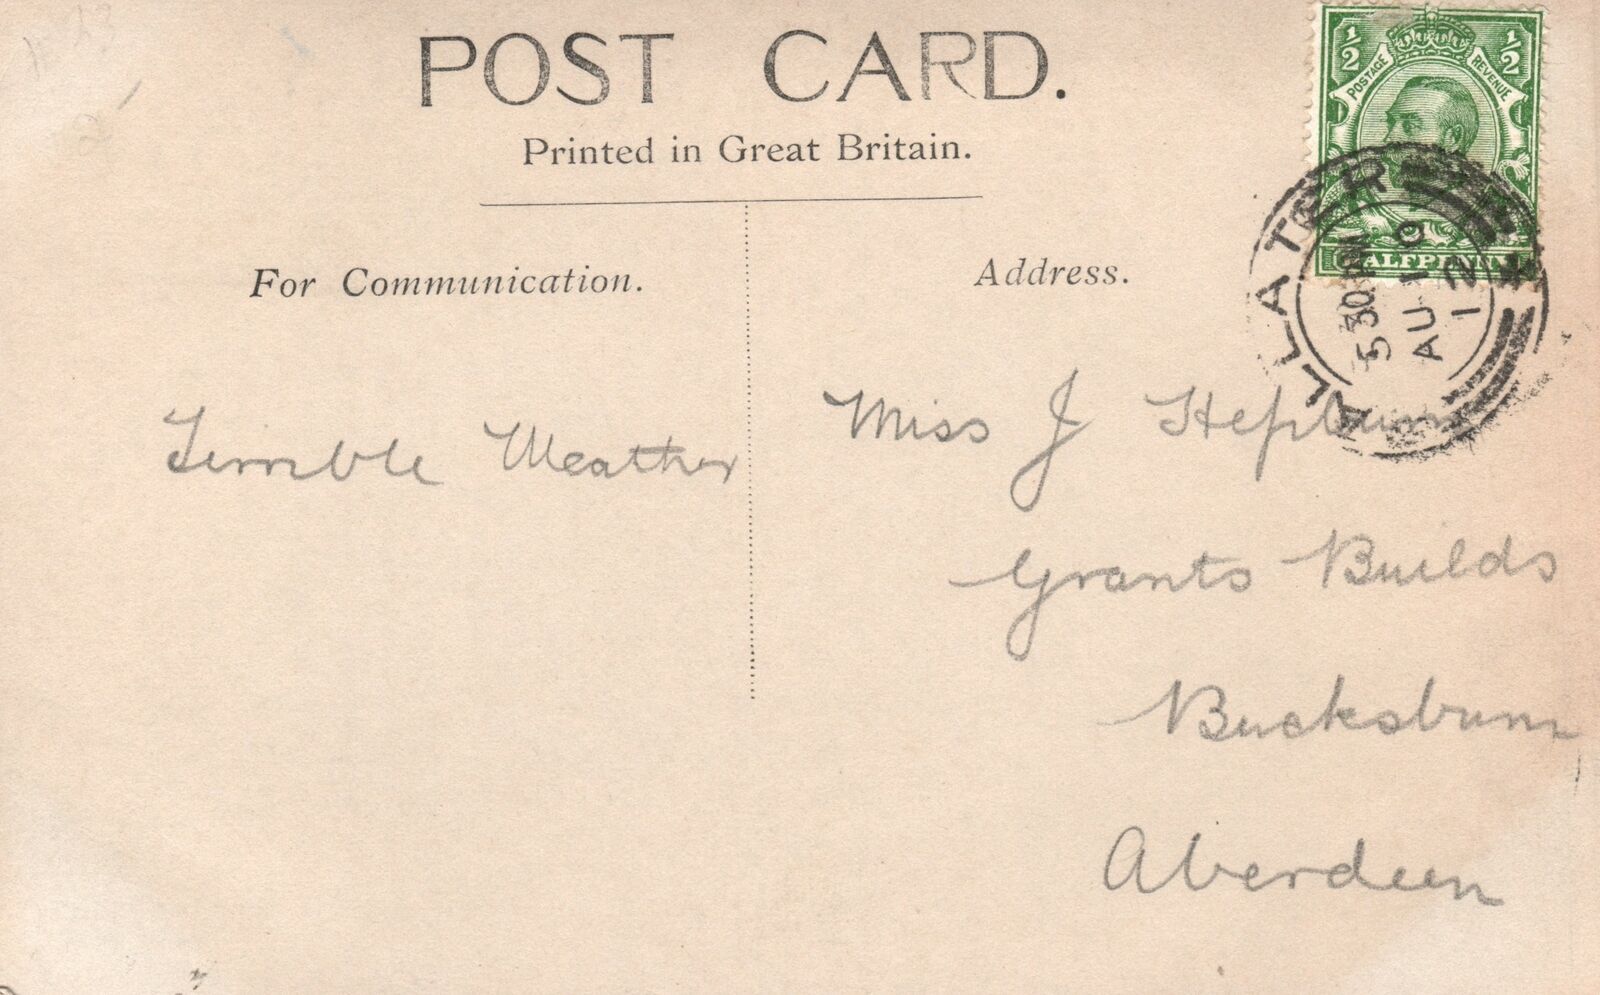 POST CARD.
Printed in Great Britain.
For Communication.
Address.
½ ½
POSTAGE REVENUE
HALFPENNY
BALLATER
5 30 PM
AU 10
12
Terrible Weather
Miss J Hepburn
Grants Builds
Bucksburn
Aberdeen